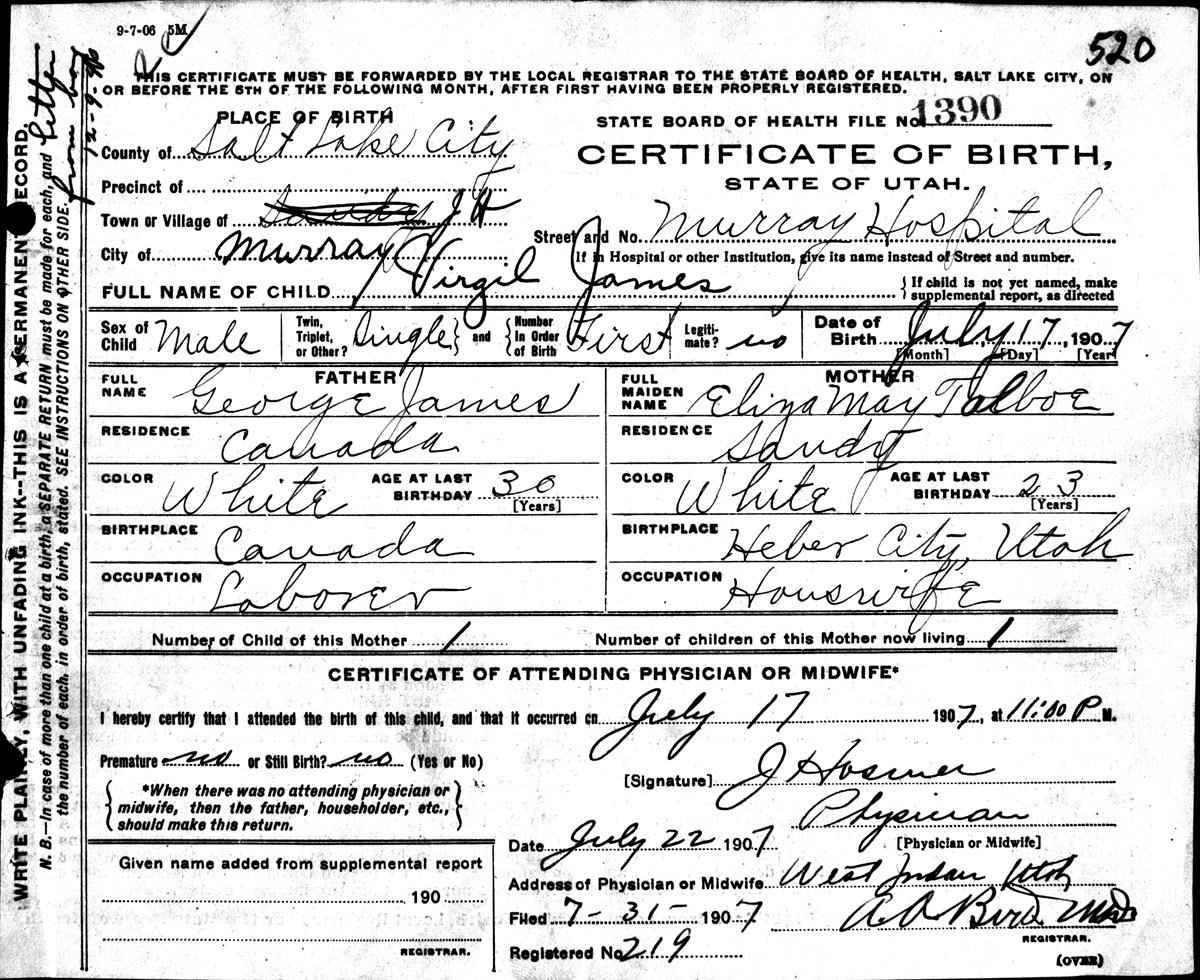 9-7-06 5M
520
THIS CERTIFICATE MUST BE FORWARDED BY THE LOCAL REGISTRAR TO THE STATE BOARD OF HEALTH, SALT LAKE CITY, ON
OR BEFORE THE 5TH OF THE FOLLOWING MONTH, AFTER FIRST HAVING BEEN PROPERLY REGISTERED.
PLACE OF BIRTH
STATE BOARD OF HEALTH FILE No. 1390
County of Salt Lake City
CERTIFICATE OF BIRTH,
STATE OF UTAH.
Precinct of
Town or Village of Sandy J H
Street and No. Murray Hospital
City of Murray
If in Hospital or other Institution, give its name instead of Street and number.
FULL NAME OF CHILD Virgil James
If child is not yet named, make
supplemental report, as directed
Sex of Child Male Twin, Triplet, or Other? Single and Number in Order of Birth First Legiti-mate? no Date of Birth July 17, 1907
[Month] [Day] [Year]
FATHER
MOTHER
FULL NAME George James
FULL MAIDEN NAME Eliza May Talboe
RESIDENCE Canada
RESIDENCE Sandy
COLOR White AGE AT LAST BIRTHDAY 30 [Years]
COLOR White AGE AT LAST BIRTHDAY 23 [Years]
BIRTHPLACE Canada
BIRTHPLACE Heber City, Utah
OCCUPATION Laborer
OCCUPATION Houswife
Number of Child of this Mother 1 Number of children of this Mother now living 1
CERTIFICATE OF ATTENDING PHYSICIAN OR MIDWIFE*
I hereby certify that I attended the birth of this child, and that it occurred on July 17 1907, at 11:00 P. M.
Premature no or Still Birth? no (Yes or No)
[Signature] J Hosmer
*When there was no attending physician or
midwife, then the father, householder, etc.,
should make this return.
Physician
[Physician or Midwife]
Date July 22 1907
Given name added from supplemental report
190
REGISTRAR.
Address of Physician or Midwife West Jordan Utah
Filed 7-31- 1907 A A Bird
REGISTRAR.
Registered No. 219
(OVER)
WRITE PLAINLY, WITH UNFADING INK--THIS IS A PERMANENT RECORD.
N. B.—In case of more than one child at a birth, a SEPARATE RETURN must be made for each, and
the number of each, in order of birth, stated. SEE INSTRUCTIONS ON OTHER SIDE.
Letter
from